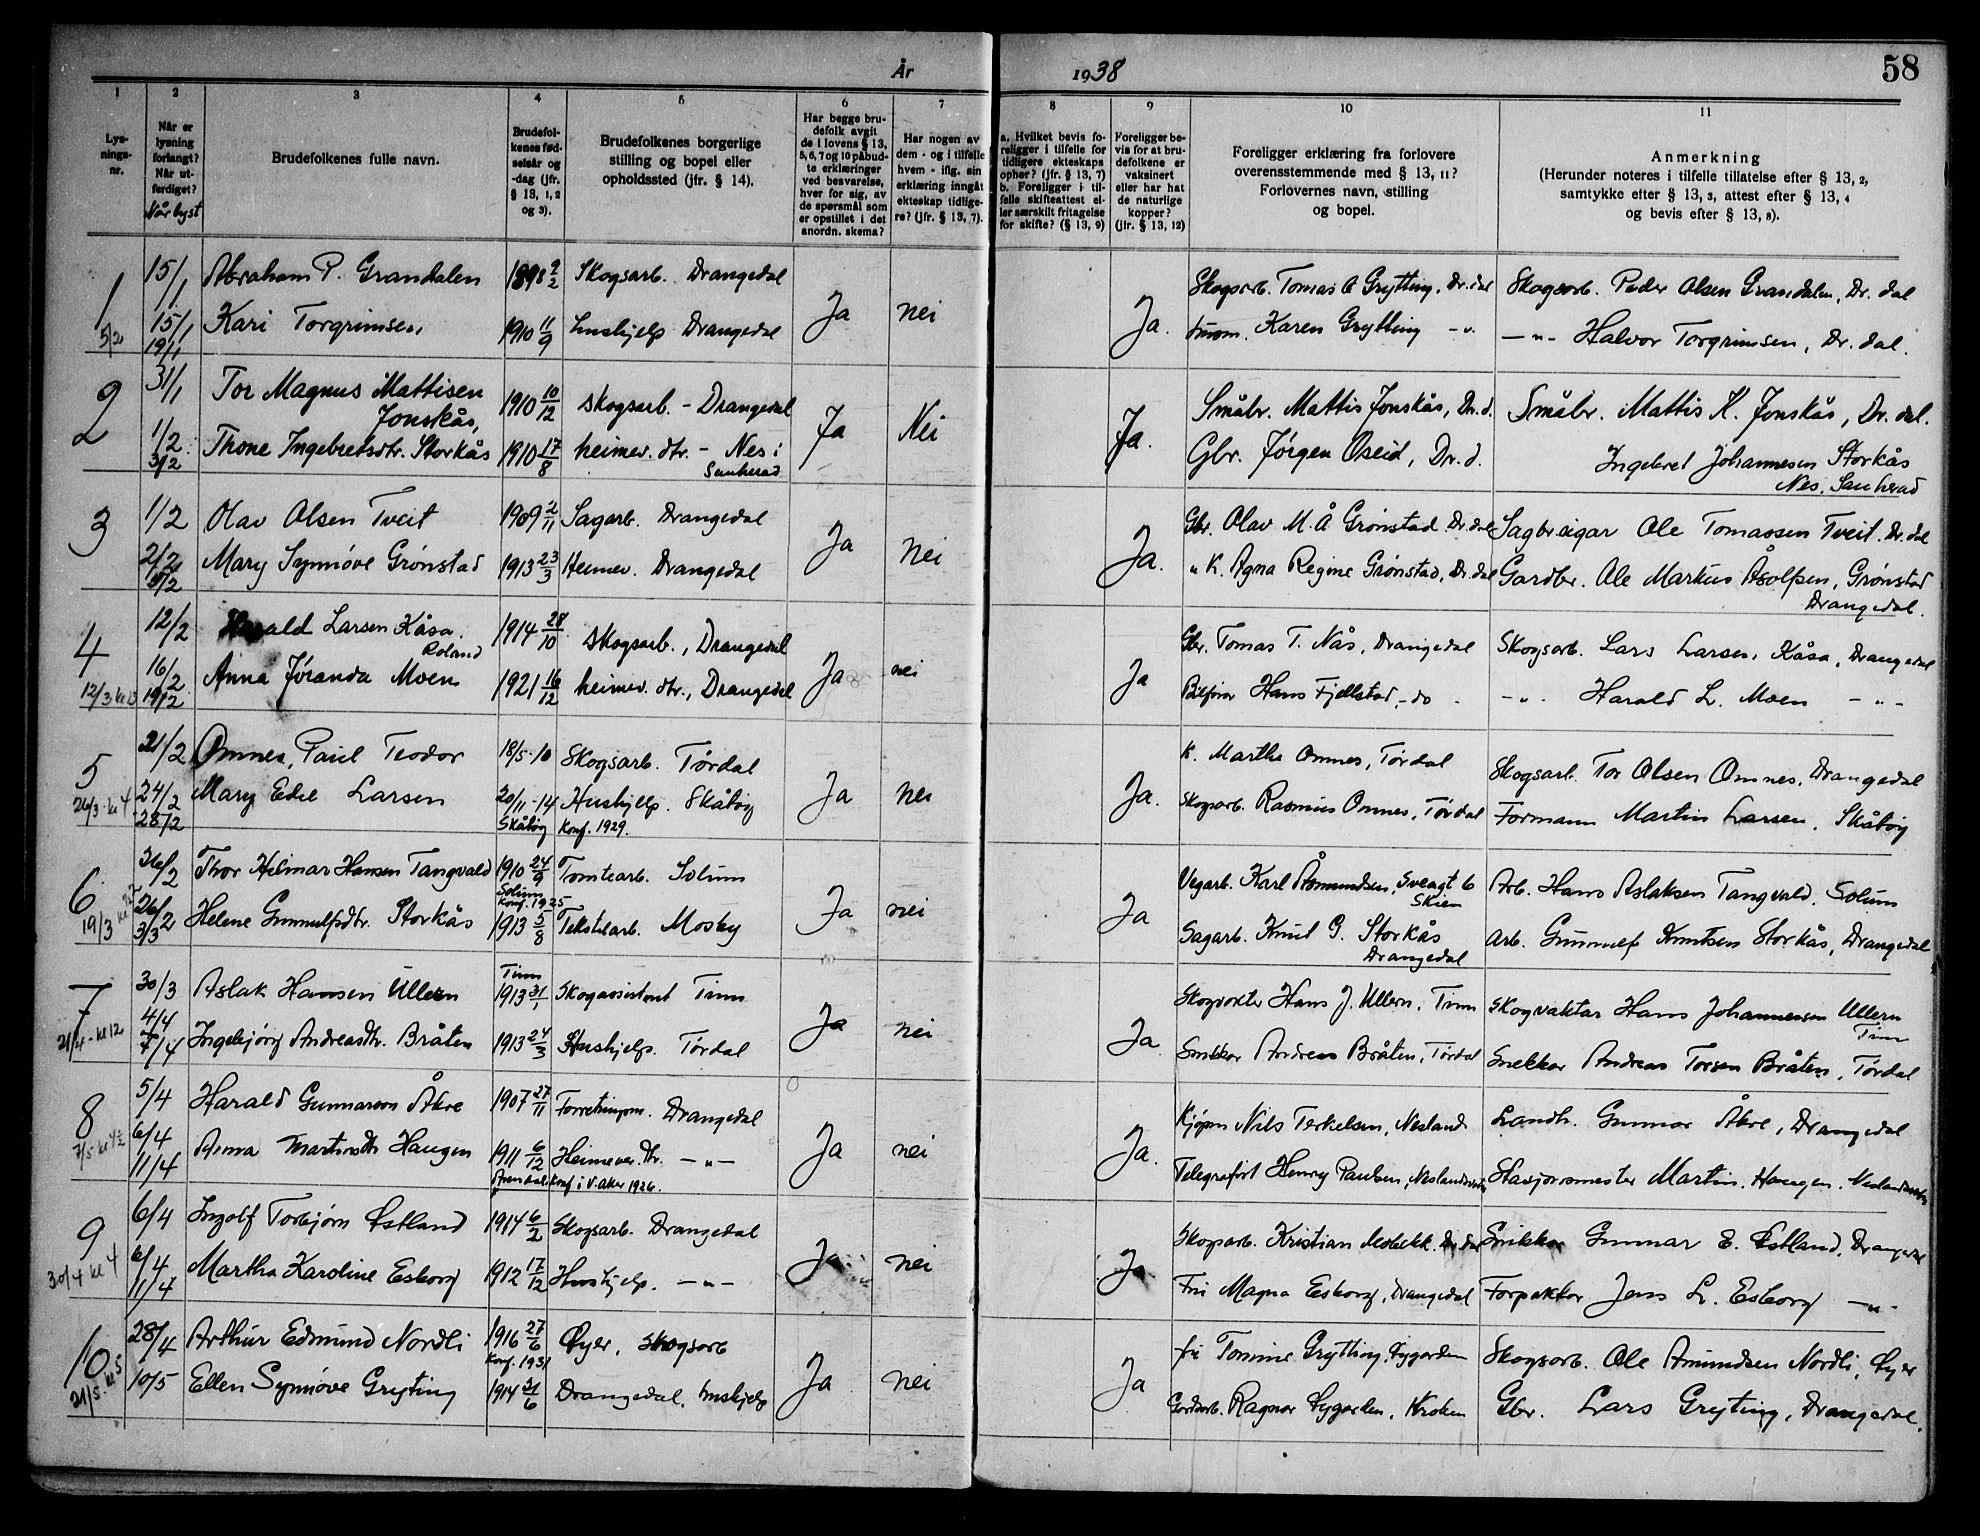 År
1938
58
1
2
3
4
5
6
7
8
9
10
11
Lys-
nings-
nr.
Når er
lysning
forlangt?
Når ut-
ferdiget?
Når lyst
Brudefolkenes fulle navn.
Brudefol-
kenes fød-
selsår og
-dag (jfr.
§ 13, 1, 2
og 3).
Brudefolkenes borgerlige
stilling og bopel eller
opholdssted (jfr. § 14).
Har begge bru-
defolk avgit
de i lovens § 13,
5, 6, 7 og 10 påbud-
te erklæringer
ved besvarelse,
hver for sig, av
de spørsmål som
er opstillet i det
anordn. skema?
Har nogen av
dem - og i tilfelle
hvem - iflg. sin
erklæring inngåt
ekteskap tidlige-
re? (jfr. § 13, 7).
a. Hvilket bevis fo-
religger i tilfelle for
tidligere ekteskaps
ophør? (jfr. § 13, 7)
b. Foreligger i til-
felle skifteattest el-
ler særskilt fritagelse
for skifte? (§ 13, 9)
Foreligger be-
vis for at bru-
defolkene er
vaksinert
eller har hat
de naturlige
kopper?
(jfr. § 13, 12)
Foreligger erklæring fra forlovere
overensstemmende med § 13, 11?
Forlovernes navn, stilling
og bopel.
Anmerkning
(Herunder noteres i tilfelle tillatelse efter § 13, 2,
samtykke efter § 13, 3, attest efter § 13, 4
og bevis efter § 13, 8).
1 15/1 Abraham P. Grandalen 1898 9/2 Skogsarb. Drangedal Ja nei Ja. Skogsarb. Tomas O Grytting, Dr.dal Skogsarb. Peder Olsen Grandalen, Dr. dal
5/2 15/1 19/1 Kari Torgrimsen 1910 11/9 Hushjelp Drangedal Karen Grytting -"- -"- Halvor Torgrimsen, Dr. dal.
2 31/1 Tor Magnus Mattisen
Jonskås, 1910 10/12 skogsarb. - Drangedal Ja Nei Ja. Småbr. Mattis Jonskås, Dr.d. Småbr. Mattis K. Jonskås, Dr. dal.
1/2 3/2 Thone Ingebretsdtr. Storkås 1910 17/8 heimev. dtr. - Nes i
Sauherad Gbr. Jørgen Oseid, Dr.d. Ingebret Johannesen Storkås
Nes, Sauherad
3 1/2 Olav Olsen Tveit 1909 2/11 Sagarb. Drangedal Ja nei Ja. Gbr. Olav M. Å Grønstad Dr.dal Sagbreigar Ole Tomassen Tveit. Dr.dal
2/2 5/2 Mary Synnøve Grønstad 1913 23/3 Heimev. Drangedal " K. Agna Regine Grønstad, Dr.dal Gardbr. Ole Markus Åsolfsen, Grønstad
Drangedal.
4 12/2 Harald Larsen Kåsa.
Roland 1914 28/10 skogsarb., Drangedal Ja nei Ja Gbr. Tomas T. Nås, Drangedal Skogsarb. Lars Larsen Kåsa, Drangedal
12/3 kl 13 16/2 19/2 Anna Jøranda Moen 1921 16/12 heimev. dtr., Drangedal Bilfører Hans Fjellstad, - do - -"- Harald L. Moen -"-
5 21/2 Omnes, Paul Teodor 18/5-10 Skogsarb. Tørdal Ja Nei Ja. K. Martha Omnes, Tørdal Skogsarb. Tor Olsen Omnes, Drangedal
26/3 - kl 4 24/2 28/2 Mary Edel Larsen 20/11-14 Hushjelp. Skåtøy Skogsarb. Rasmus Omnes, Tørdal Formann Martin Larsen, Skåtøy
Skåtøy Konf. 1929.
6 26/2 Thor Hilmar Hansen Tangvald 1910 24/9 Tomtearb. Solum Ja nei Ja Vegarb. Karl Åsmundsen, Sveagt 6
Skien Arb. Hans Aslaksen Tangvald. Solum
Solum
Konf. 1925
19/3 kl 12 26/2 3/3 Helene Gunnulfsdtr. Storkås 1913 5/8 Tekstilarb. Mosby Sagarb. Knut G. Storkås
Drangedal Arb. Gunnulf Knutsen Storkås, Drangedal
7 30/3 Aslak Hansen Ullern Tinn
1913 31/1 Skogassistent Tinn Ja nei Ja Skogvokter Hans J. Ullern, Tinn Skogvaktar Hans Johannessen Ullern
Tinn
21/4 - kl 12 4/4 7/4 Ingebjørg Andreasdtr. Bråten 1913 24/3 Hushjelp. Tørdal Snikkar Andreas Bråten, Tørdal Snekkar Andreas Torsen Bråten, Tørdal
8 5/4 Harald Gunnarson Åkre 1907 27/11 Forretningsm. Drangedal Ja nei Ja. Kjøpm Nils Terkelsen, Neslands Landh. Gunnar Åkre, Drangedal
7/5 - kl 4½ 6/4 11/4 Anna Martinsdtr Haugen 1911 6/12 Heimever. dtr. -"- Telegrafist Henry Paulsen, Neslandsvatn Stasjonsmester Martin Haugen. Neslandsvatn
Arendal konf i V. Aker 1926.
9 6/4 Ingolf Torbjørn Østland 1914 6/2 Skogsarb. Drangedal Ja nei Ja Skogsarb. Kristian Mobekk. Dr dal Snikkar Gunnar E. Østland, Drangedal
30/4 kl 4 6/4 11/4 Martha Karoline Esborg 1912 17/12 Hushjelp. -"- Frk Magna Esborg, Drangedal Forpaktar Jens L. Esborg -"-
10 28/4 Arthur Edmund Nordli 1916 27/6 Øyer, skogsarb Ja nei Ja Tomine Grytting, Øygarden Skogsarb. Ole Amundsen Nordli, Øyer
Konf. 1931
21/5 kl 5 10/5 Ellen Synnøve Gryting 1914 21/6 Drangedal, hushjelp Gardarb. Ragnar Øygarden, Kroken Gbr. Lars Gryting, Drangedal.